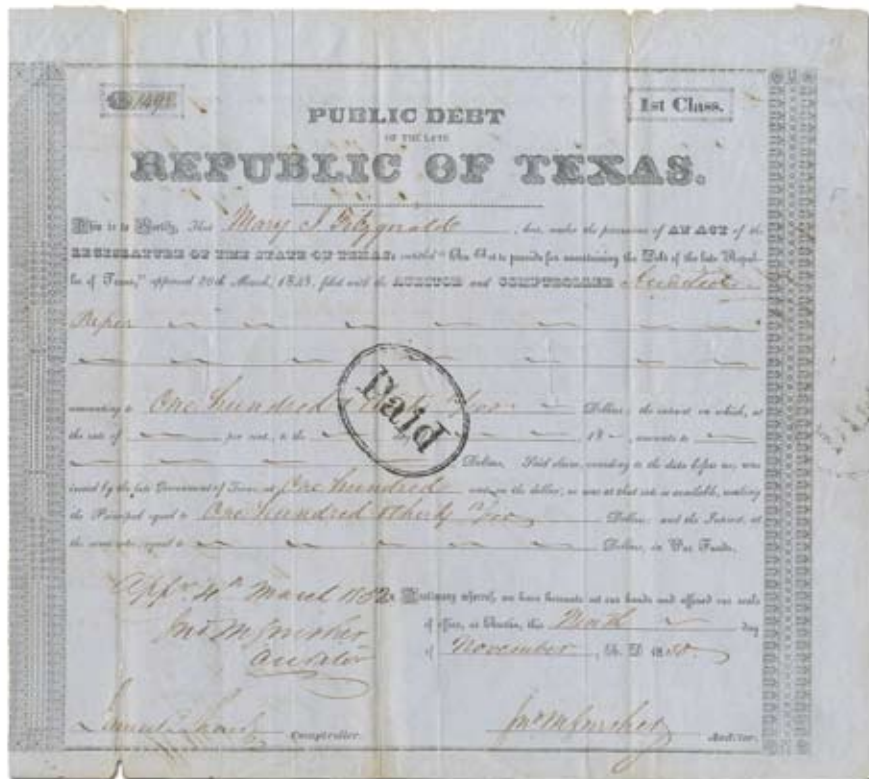 1st Class.
PUBLIC DEBT
OF THE LATE
REPUBLIC OF TEXAS.
This is to Certify, That Mary S. Fitzgerald has, under the provisions of AN ACT of the
LEGISLATURE OF THE STATE OF TEXAS; entitled "An Act to provide for ascertaining the Debt of the late Repub-
lic of Texas," approved 20th March, 1848, filed with the AUDITOR and COMPTROLLER
amounting to One hundred Dollars; the interest on which, at
the rate of per cent., to the 18 , amounts to
Dollars. Said claim, according to the data before us, was
issued by the late Government of Texas at One hundred cents on the dollar, or was at that rate so available, making
the Principal equal to One hundred & thirty /100 Dollars and the Interest, at
the same rate, equal to Dollars, in Par Funds.
Paid
4th March 1852
In Testimony whereof, we have hereunto set our hands and affixed our seals
of office, at Austin, this Ninth day
Auditor
of November, A. D. 1850.
Comptroller.
Auditor.